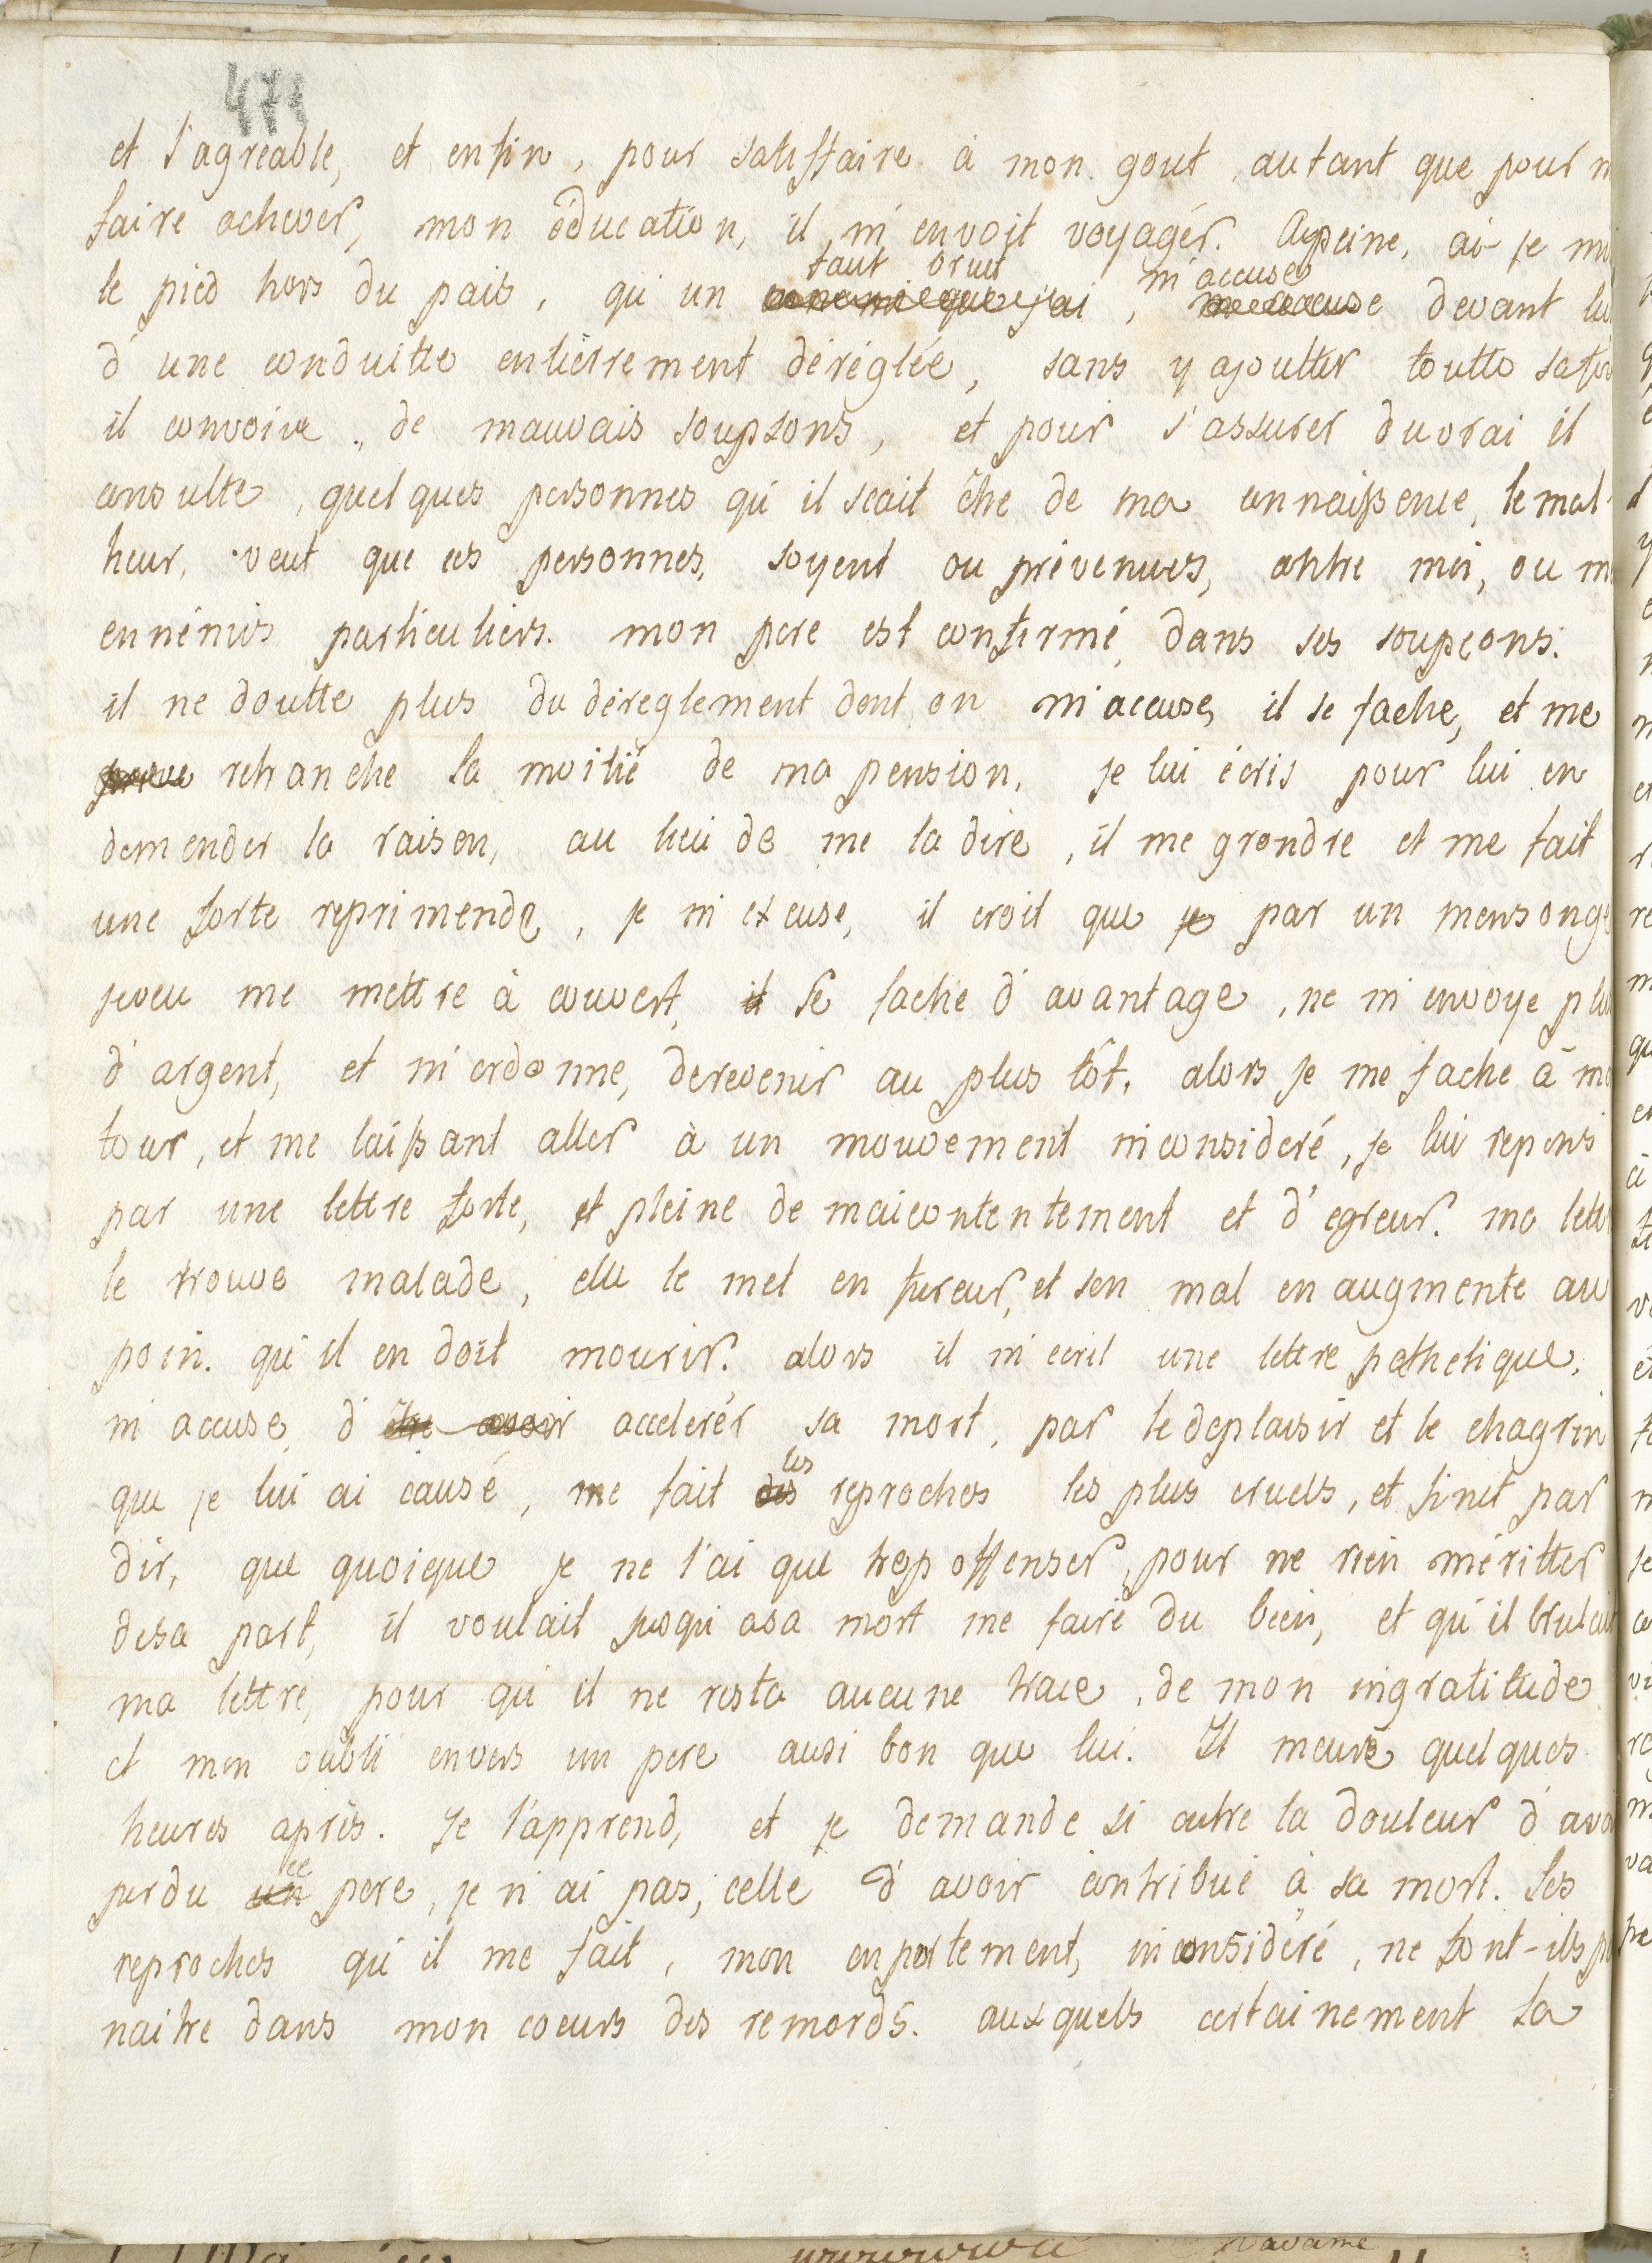 471
et l'agréable, et enfin, pour satisffaire à mon gout, autant que pour m
faire achever, mon éducation, il m'envoit voyager. Apeine, ai-je m
le pied hors du païs, qu'un ennemi que j'ai faut bruit, me accuse m'accuse devant lui
d'une conduitte entièrrement déréglée, sans y ajoutter toutte sa foi
il conçoive de mauvais soupsons, et pour s'assurer du vrai il
consulte, quelques personnes qu'il scait être de ma connaissence, le mal-
heur, veut que ces personnes, soyent ou prévenues, contre moi, ou m
ennémis particuliers. mon pere est confirmé, dans ses soupçons.
il ne doutte plus du déreglement dont on m'accuse, il se fache, et me
retranche la moitié de ma pension. je lui écris pour lui en
demender la raison, au lieu de me la dire, il me grondre et me fait
une forte reprimende, je m'excuse, il croit que je par un mensonge
me mettre à couvert, il se fache d'avantage, ne m'envoye plus
d'argent, et m'ordonne, derevenir au plus tôt. alors je me fache à mo
tour, et me laissant aller à un mouvement inconsideré, je lui repons
par une lettre forte, et pleine de maicontentement et d'egreur. ma lettr
le trouve malade, elle le met en fureur, et son mal en augmente au
poin. qu'il en doit mourir. alors il m'ecrit une lettre pathetique.
m'accuse, d'être avoir accelerér sa mort, par le deplaisir et le chagrin
que je lui ai causé, me fait des les reproches les plus cruels, et finit par
dir, que quoique je ne l'ai que trop offenser, pour ne rien méritter
desa part, il voulait jusqu'asa mort me faire du bien, et qu'il brulait
ma lettre, pour qu'il ne resta aucune trace, de mon ingratitude
et mon oubli envers un pere ausi bon que lui. Il meure quelques
heures après. Je l'apprend, et je demande si outre la douleur d'avoi
perdu un ce pere, je n'ai pas, celle d'avoir contribué à sa mort. Les
reproches qu'il me fait, mon enportement, inconsidéré, ne font-ils pa
naitre dans mon coeurs des remords. auxquels certainement la